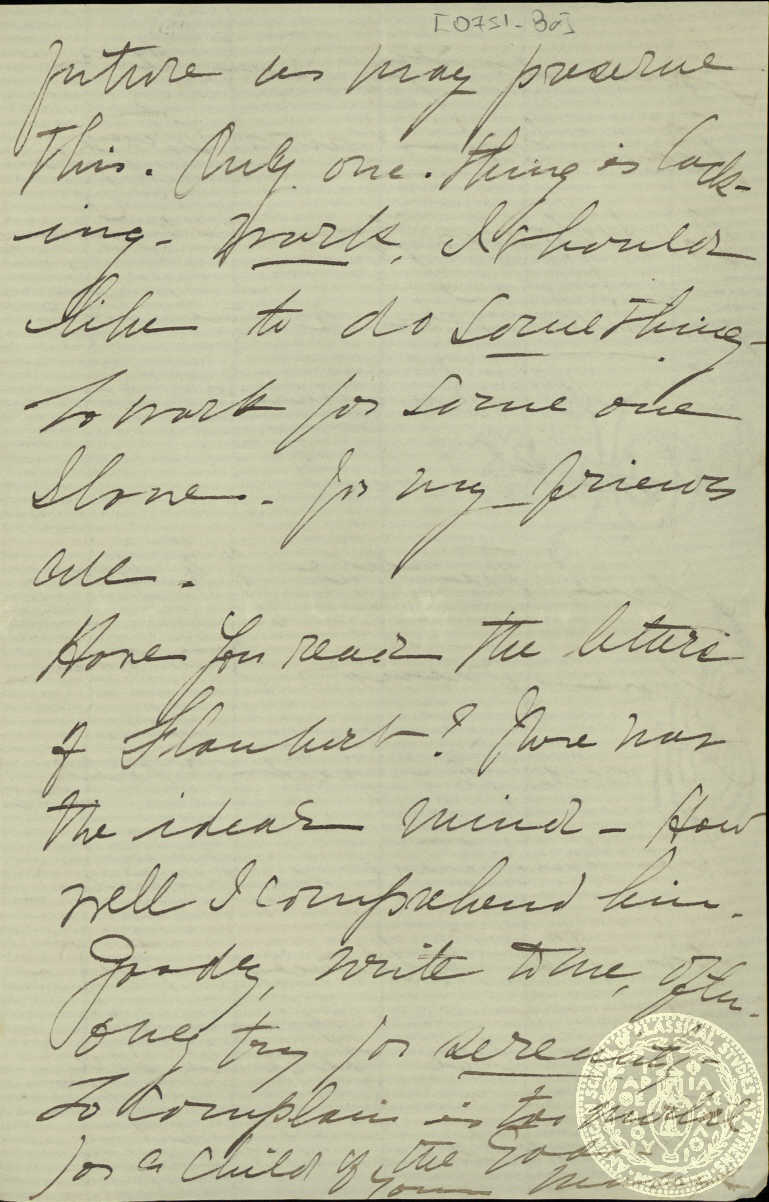 [0751-30]
future as may preserve
this. Only one thing is lack-
ing - work, I should
like to do something -
to work for some one
alone - for my friends
all.
Have you read the letters
of Flaubert? There was
the ideal mind - How
well I comprehend him.
Goody, write to me, often.
Only try for serenity -
To complain is too
for a child of the Gods -
Your
SCHOOL OF CLASSICAL STUDIES AT ATHENS